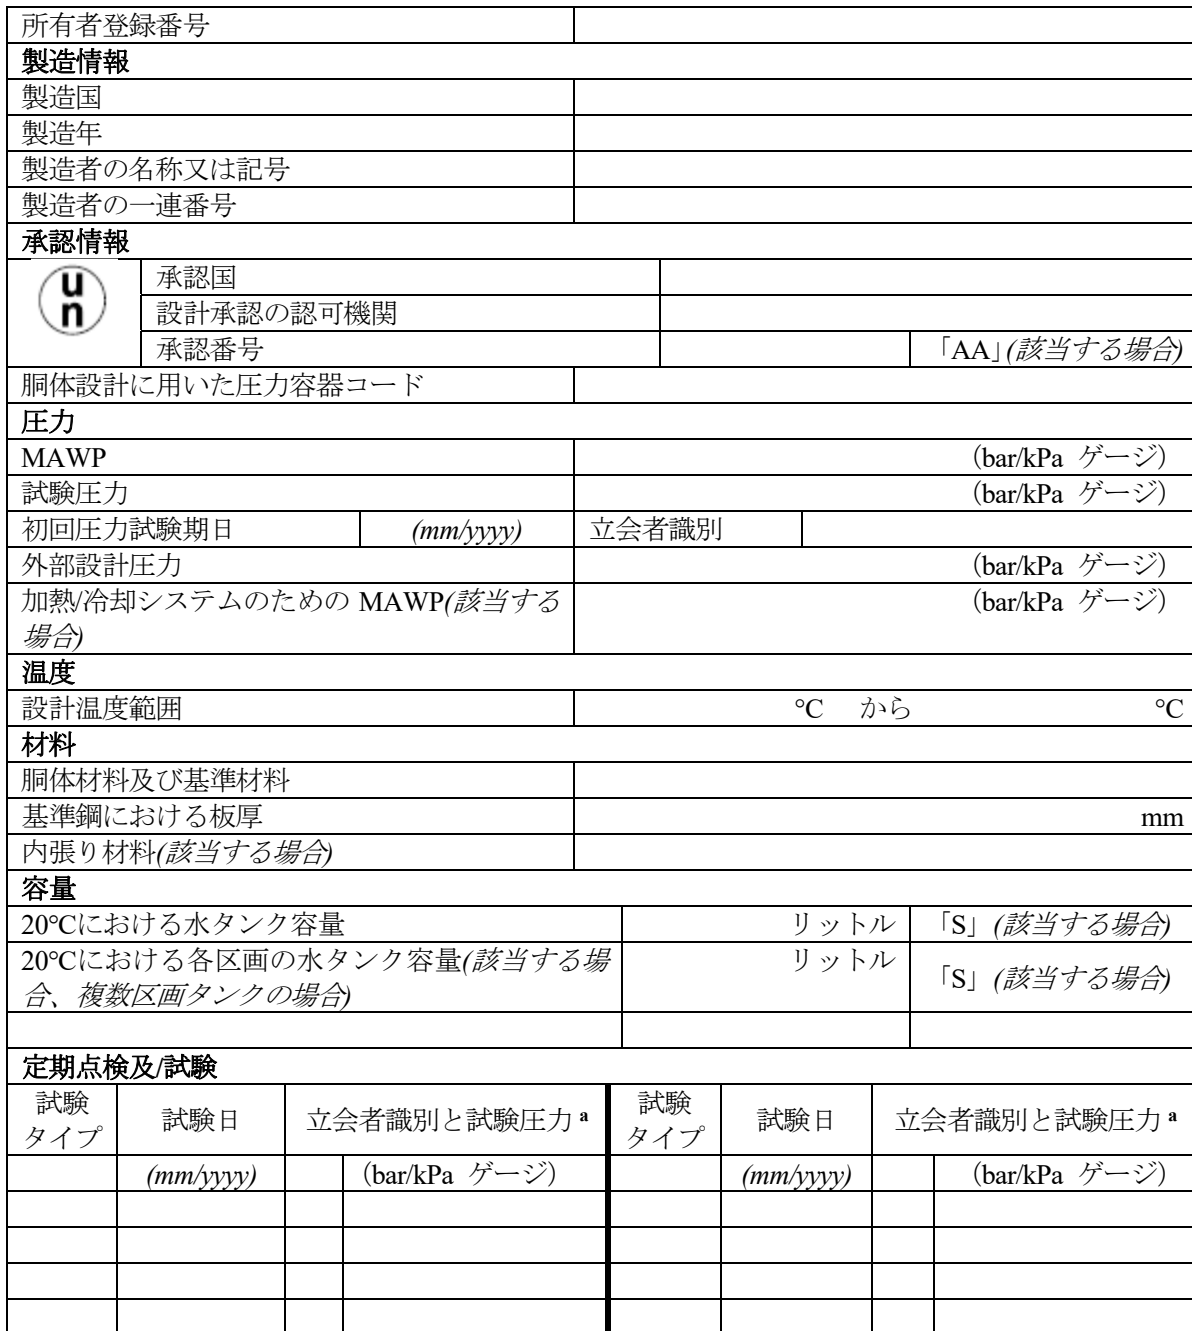 所有者登録番号
製造情報
製造国
製造年
製造者の名称又は記号
製造者の一連番号
承認情報
un
承認国
設計承認の認可機関
承認番号 「AA」(該当する場合)
胴体設計に用いた圧力容器コード
圧力
MAWP (bar/kPa ゲージ)
試験圧力 (bar/kPa ゲージ)
初回圧力試験期日 (mm/yyyy) 立会者識別
外部設計圧力 (bar/kPa ゲージ)
加熱/冷却システムのための MAWP(該当する (bar/kPa ゲージ)
場合)
温度
設計温度範囲 °C から °C
材料
胴体材料及び基準材料
基準鋼における板厚 mm
内張り材料(該当する場合)
容量
20°Cにおける水タンク容量 リットル 「S」(該当する場合)
20°Cにおける各区画の水タンク容量(該当する場 リットル 「S」(該当する場合)
合、複数区画タンクの場合)
定期点検及/試験
試験 試験
タイプ 試験日 立会者識別と試験圧力 a タイプ 試験日 立会者識別と試験圧力 a
(mm/yyyy) (bar/kPa ゲージ) (mm/yyyy) (bar/kPa ゲージ)